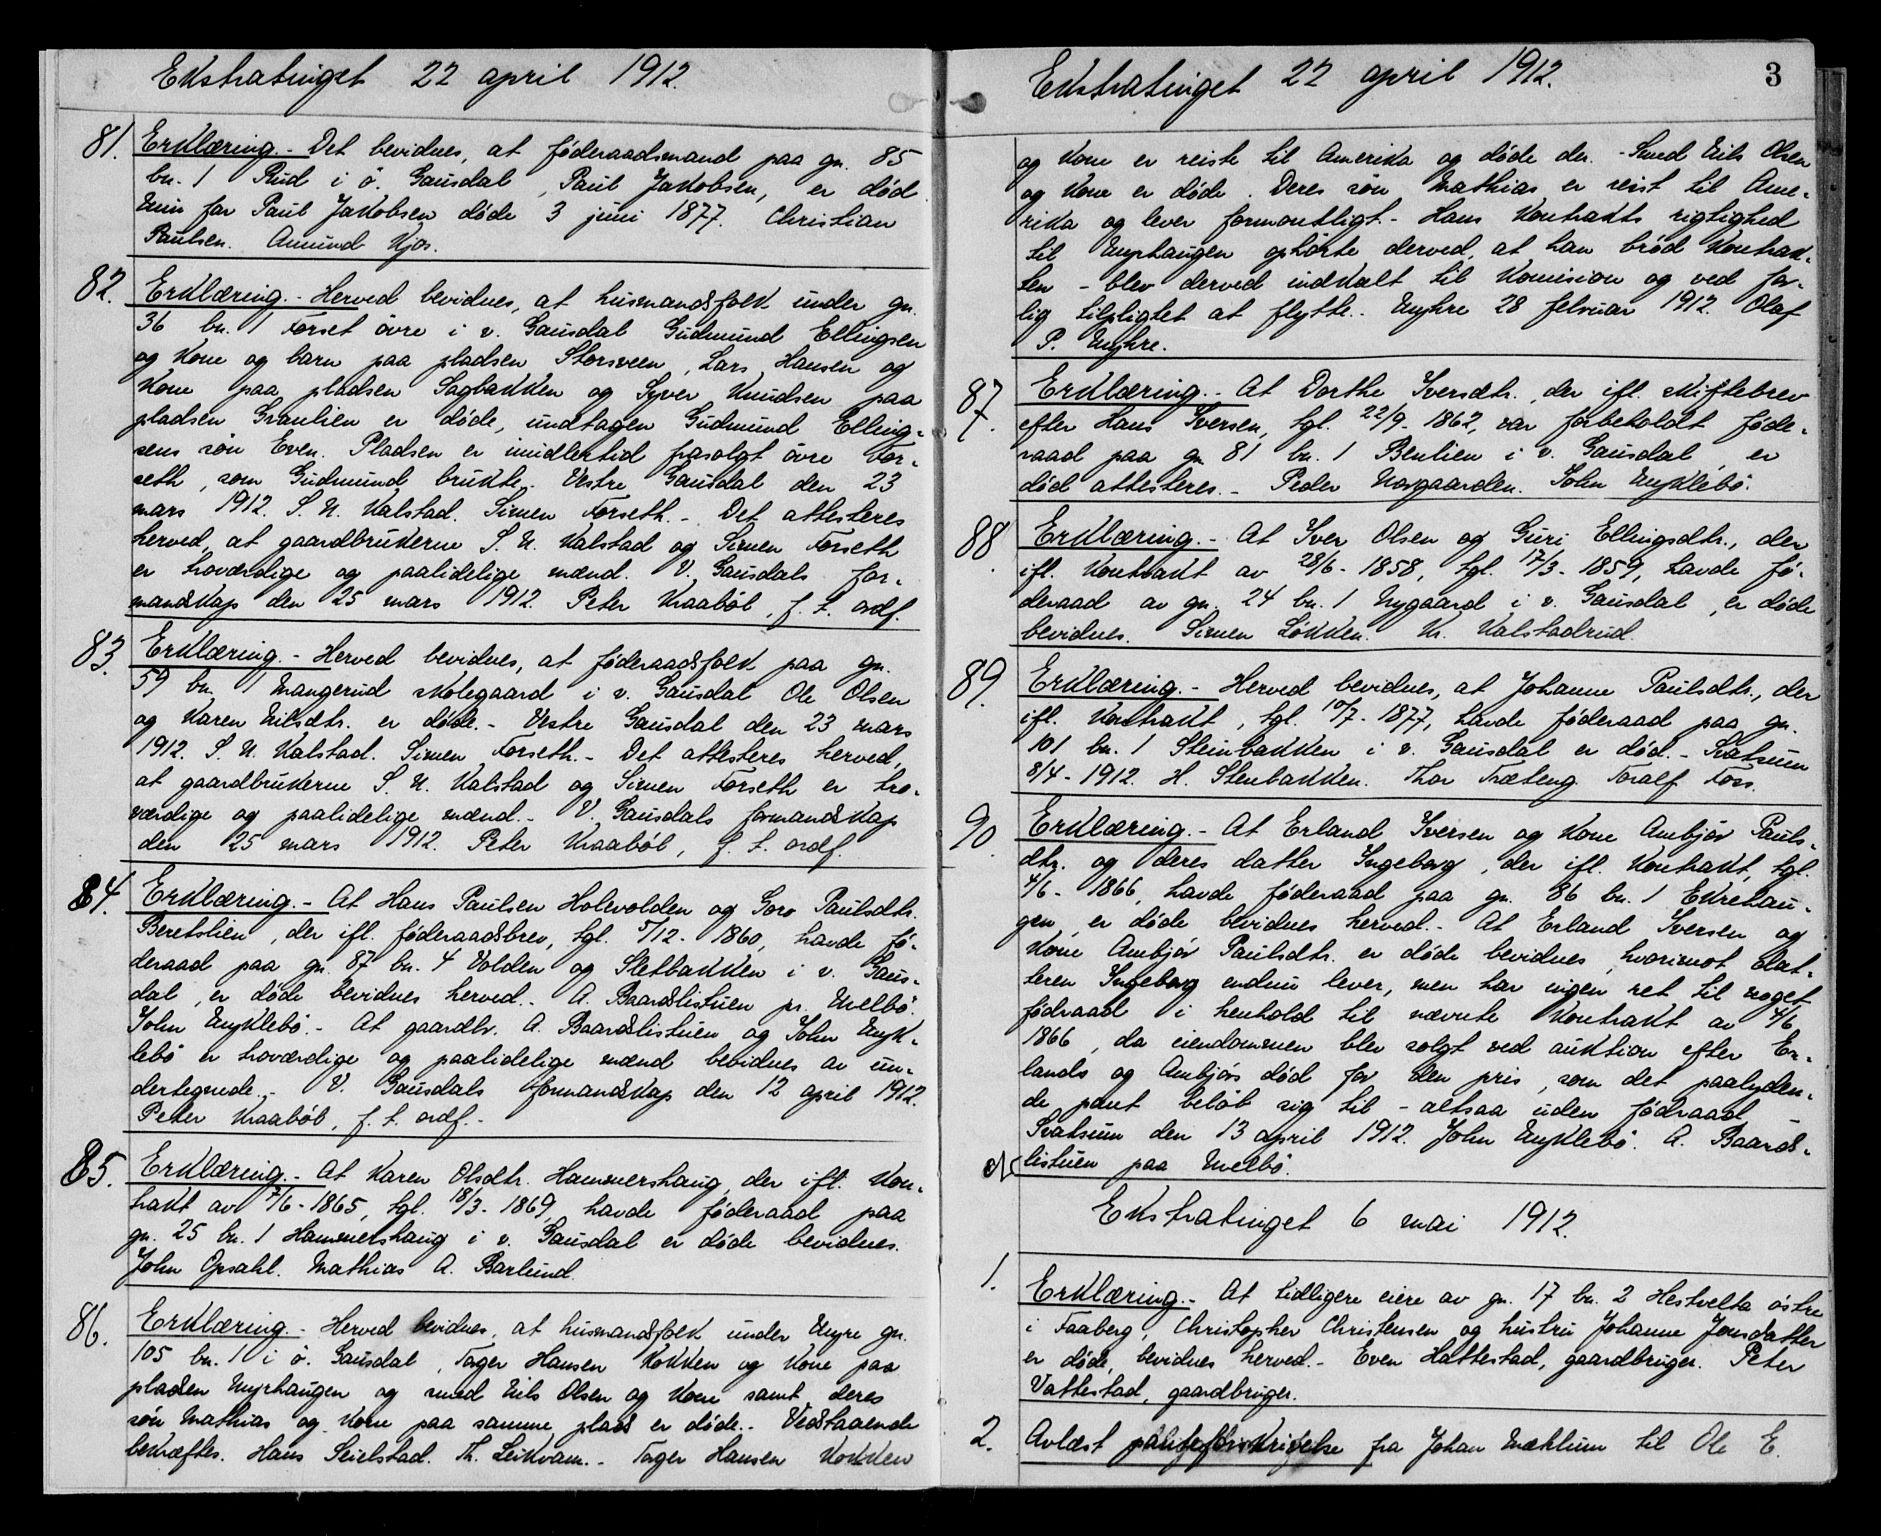 Ekstratinget 22 april 1912.
81. Erklæring. - Det bevidnes, at föderaadsmand paa gn. 85
bn. 1 Rud i ö. Gausdal, Paul Jakobsen, er död.
Min far Paul Jakobsen döde 3 juni 1877. Christian
Paulsen. Amund Kjos.
82. Erklæring. - Herved bevidnes, at husmandsfolk under gn.
36 bn. 1 Forset övre i v. Gausdal Gudmund Ellingsen
og kone og barn paa pladsen Storsveen, Lars Hansen og
kone paa pladsen Sagbakken og Syver Knudsen paa
pladsen Granlien er döde, undtagen Gudmund Elling-
sens sön Even. Pladsen er imidlertid frasolgt övre For-
seth, som Gudmund brukte. Vestre Gausdal den 23
mars 1912. S. U. Kalstad. Simen Forseth. - Det attesteres
herved, at gaardbrukerne S. U. Kalstad og Simen Forseth
er troværdige og paalidelige mænd. V. Gausdals for-
mandskap den 25 mars 1912. Peter Kraaböl, f. t. ordf.
83. Erklæring. - Herved bevidnes, at föderaadsfolk paa gn.
59 bn. 1 Mangerud Skolegaard i v. Gausdal Ole Olsen
og Karen Nilsdtr. er döde. - Vestre Gausdal den 23 mars
1912. S. U. Kalstad. Simen Forseth. - Det attesteres herved,
at gaardbrukerne S. U. Kalstad og Simen Forseth er tro-
værdige og paalidelige mænd. - V. Gausdals formandskap
den 25 mars 1912. Peter Kraaböl, f. t. ordf.
84. Erklæring. - At Hans Paulsen Holevolden og Goro Paulsdtr.
Beretslien, der ifl. föderaadsbrev, tgl. 5/12 - 1860, havde fö-
deraad paa gn. 87 bn. 4 Volden og Sletbakken i v. Gaus-
dal, er döde bevidnes herved. - A. Baardslistuen pr. Mælbö.
John Nyklebö. - At gaardbr. A. Baardslistuen og John Nyk-
lebö er troværdige og paalidelige mænd bevidnes av un-
dertegnede. - V. Gausdals formandskap den 12 april 1912.
Peter Kraaböl, f. t. ordf. -
85. Erklæring. - At Karen Olsdtr. Hammershaug, der ifl. kon-
trakt av 7/6 - 1865, tgl. 18/3 - 1869, havde föderaad paa
gn. 25 bn. 1 Hammershaug i v. Gausdal er döde bevidnes.
John Opsahl. Mathias A. Barlund.
86. Erklæring. - Herved bevidnes, at husmandsfolk under Myre gn.
105 bn. 1 i ö. Gausdal, Tager Hansen Kokken og kone paa
pladsen Myrhaugen og smed Nils Olsen og kone samt deres
sön Mathias og kone paa samme plads er döde. - Vedstaaende
bekræftes. Hans Seielstad. Th. Leikvam. - Tager Hansen Kokken
Ekstratinget 22 april 1912. 3
og kone er reiste til Amerika og döde der. - Smed Nils Olsen
og kone er döde. Deres sön Mathias er reist til Ame-
rika og lever formontligt. - Hans kontrakts rigtighed
til Myrhaugen ophörte derved, at han bröd kontrak-
ten - blev derved indkalt til komision og ved for-
lig tilpligtet at flytte. - Myhre 28 februar 1912. Olaf
P. Myhre.
87. Erklæring. - At Dorthe Iversdtr., der ifl. skiftebrev
efter Hans Iversen, tgl. 22/9 - 1862, var forbeholdt föde-
raad paa gn 81 bn. 1 Benlien i v. Gausdal, er
död attesteres. - Peder Norgaarden. John Nyklebö.
88 Erklæring. - At Iver Olsen og Guri Ellingsdtr., der
ifl. kontrakt av 28/6 - 1858, tgl. 17/3 - 1859, havde fö-
deraad av gn. 24 bn. 1 Nygaard i v. Gausdal, er döde
bevidnes. Simen Lökken. K. Kalstadrud.
89. Erklæring. - Herved bevidnes, at Johanne Paulsdtr., der
ifl. kontrakt, tgl. 10/7 - 1877, havde föderaad paa gn.
101 bn. 1 Steinbakken i v. Gausdal er död. - Svatsum
8/4 - 1912. H. Stenbakken. Thor Træteng. Toralf Foss.
90. Erklæring. - At Erland Iversen og kone Ambjör Pauls-
dtr. og deres datter Ingeborg, der ifl. kontrakt, tgl.
4/6 - 1866, havde föderaad paa gn. 86 bn. 1 Ekrehau-
gen, er döde bevidnes herved. - At Erland Iversen og
kone Ambjör Paulsdtr. er döde bevidnes, hvorimot dat-
teren Ingeborg endnu lever, men har ingen ret til noget
födraad i henhold til nævnte kontrakt av 4/6
1866, da eiendommen blev solgt ved auktion efter Er-
lands og Ambjörs död for den pris, som det paalyden-
de pant belöb sig til - altsaa uden födraad -
Svatsum den 13 april 1912. John Nyklebö. A. Baards-
listuen paa Mælbö.
Ekstratinget 6 mai 1912.
1. Erklæring. - At tidligere eiere av gn. 17 bn. 2 Hestvelta östre
i Faaberg, Christopher Christensen og hustru Johanne Jonsdatter
er döde, bevidnes herved. - Even Hattestad, gaardbruger. Peter
Vattestad, gaardbruger.
2. Avlæst panteforskrivelse fra Johan Mæhlum til Ole E.